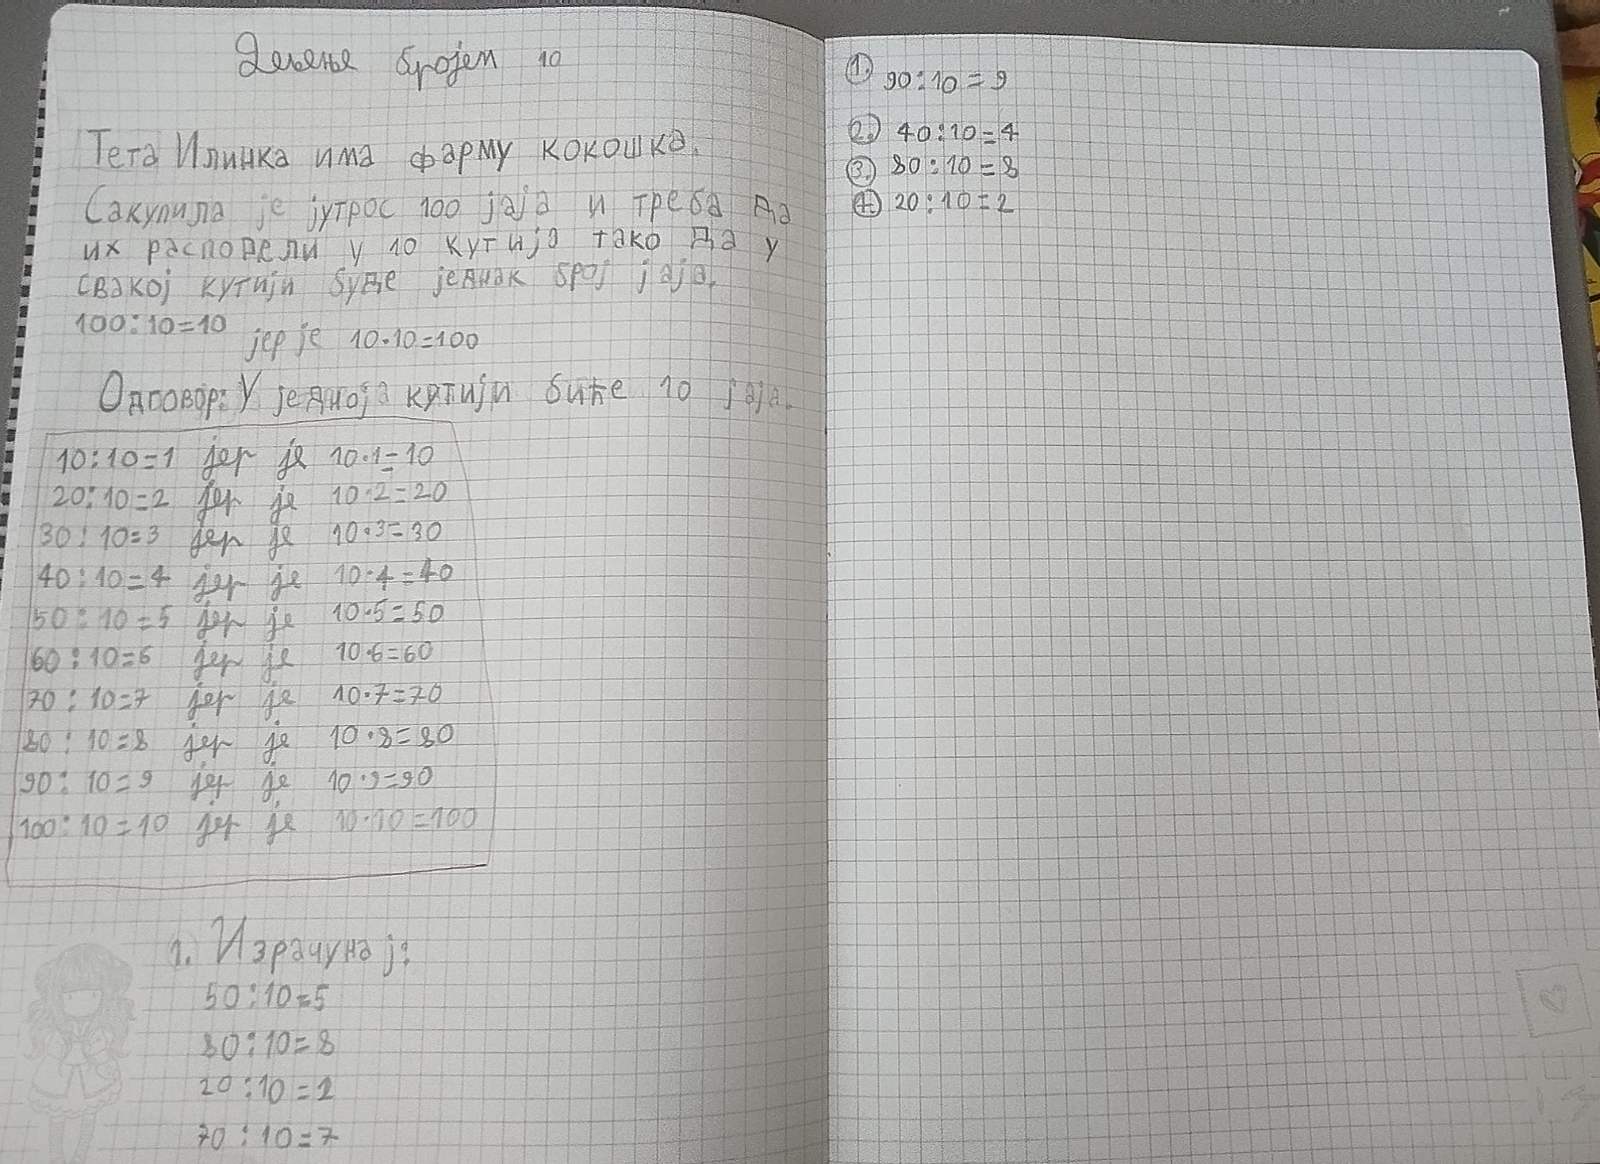 Дељење бројем 10
Тета Илинка има фарму кокошка.
Сакупила је јутрос 100 јаја и треба да
их расподели у 10 кутија тако да у
свакој кутији буде једнак број јаја.
100:10=10
јер је 10·10=100
Одговор: У једној кутији биће 10 јаја.
10:10=1 јер је 10·1=10
20:10=2 јер је 10·2=20
30:10=3 јер је 10·3=30
40:10=4 јер је 10·4=40
50:10=5 јер је 10·5=50
60:10=6 јер је 10·6=60
70:10=7 јер је 10·7=70
80:10=8 јер је 10·8=80
90:10=9 јер је 10·9=90
100:10=10 јер је 10·10=100
1. Израчунај:
50:10=5
80:10=8
20:10=2
70:10=7
1. 90:10=9
2. 40:10=4
3. 80:10=8
4. 20:10=2